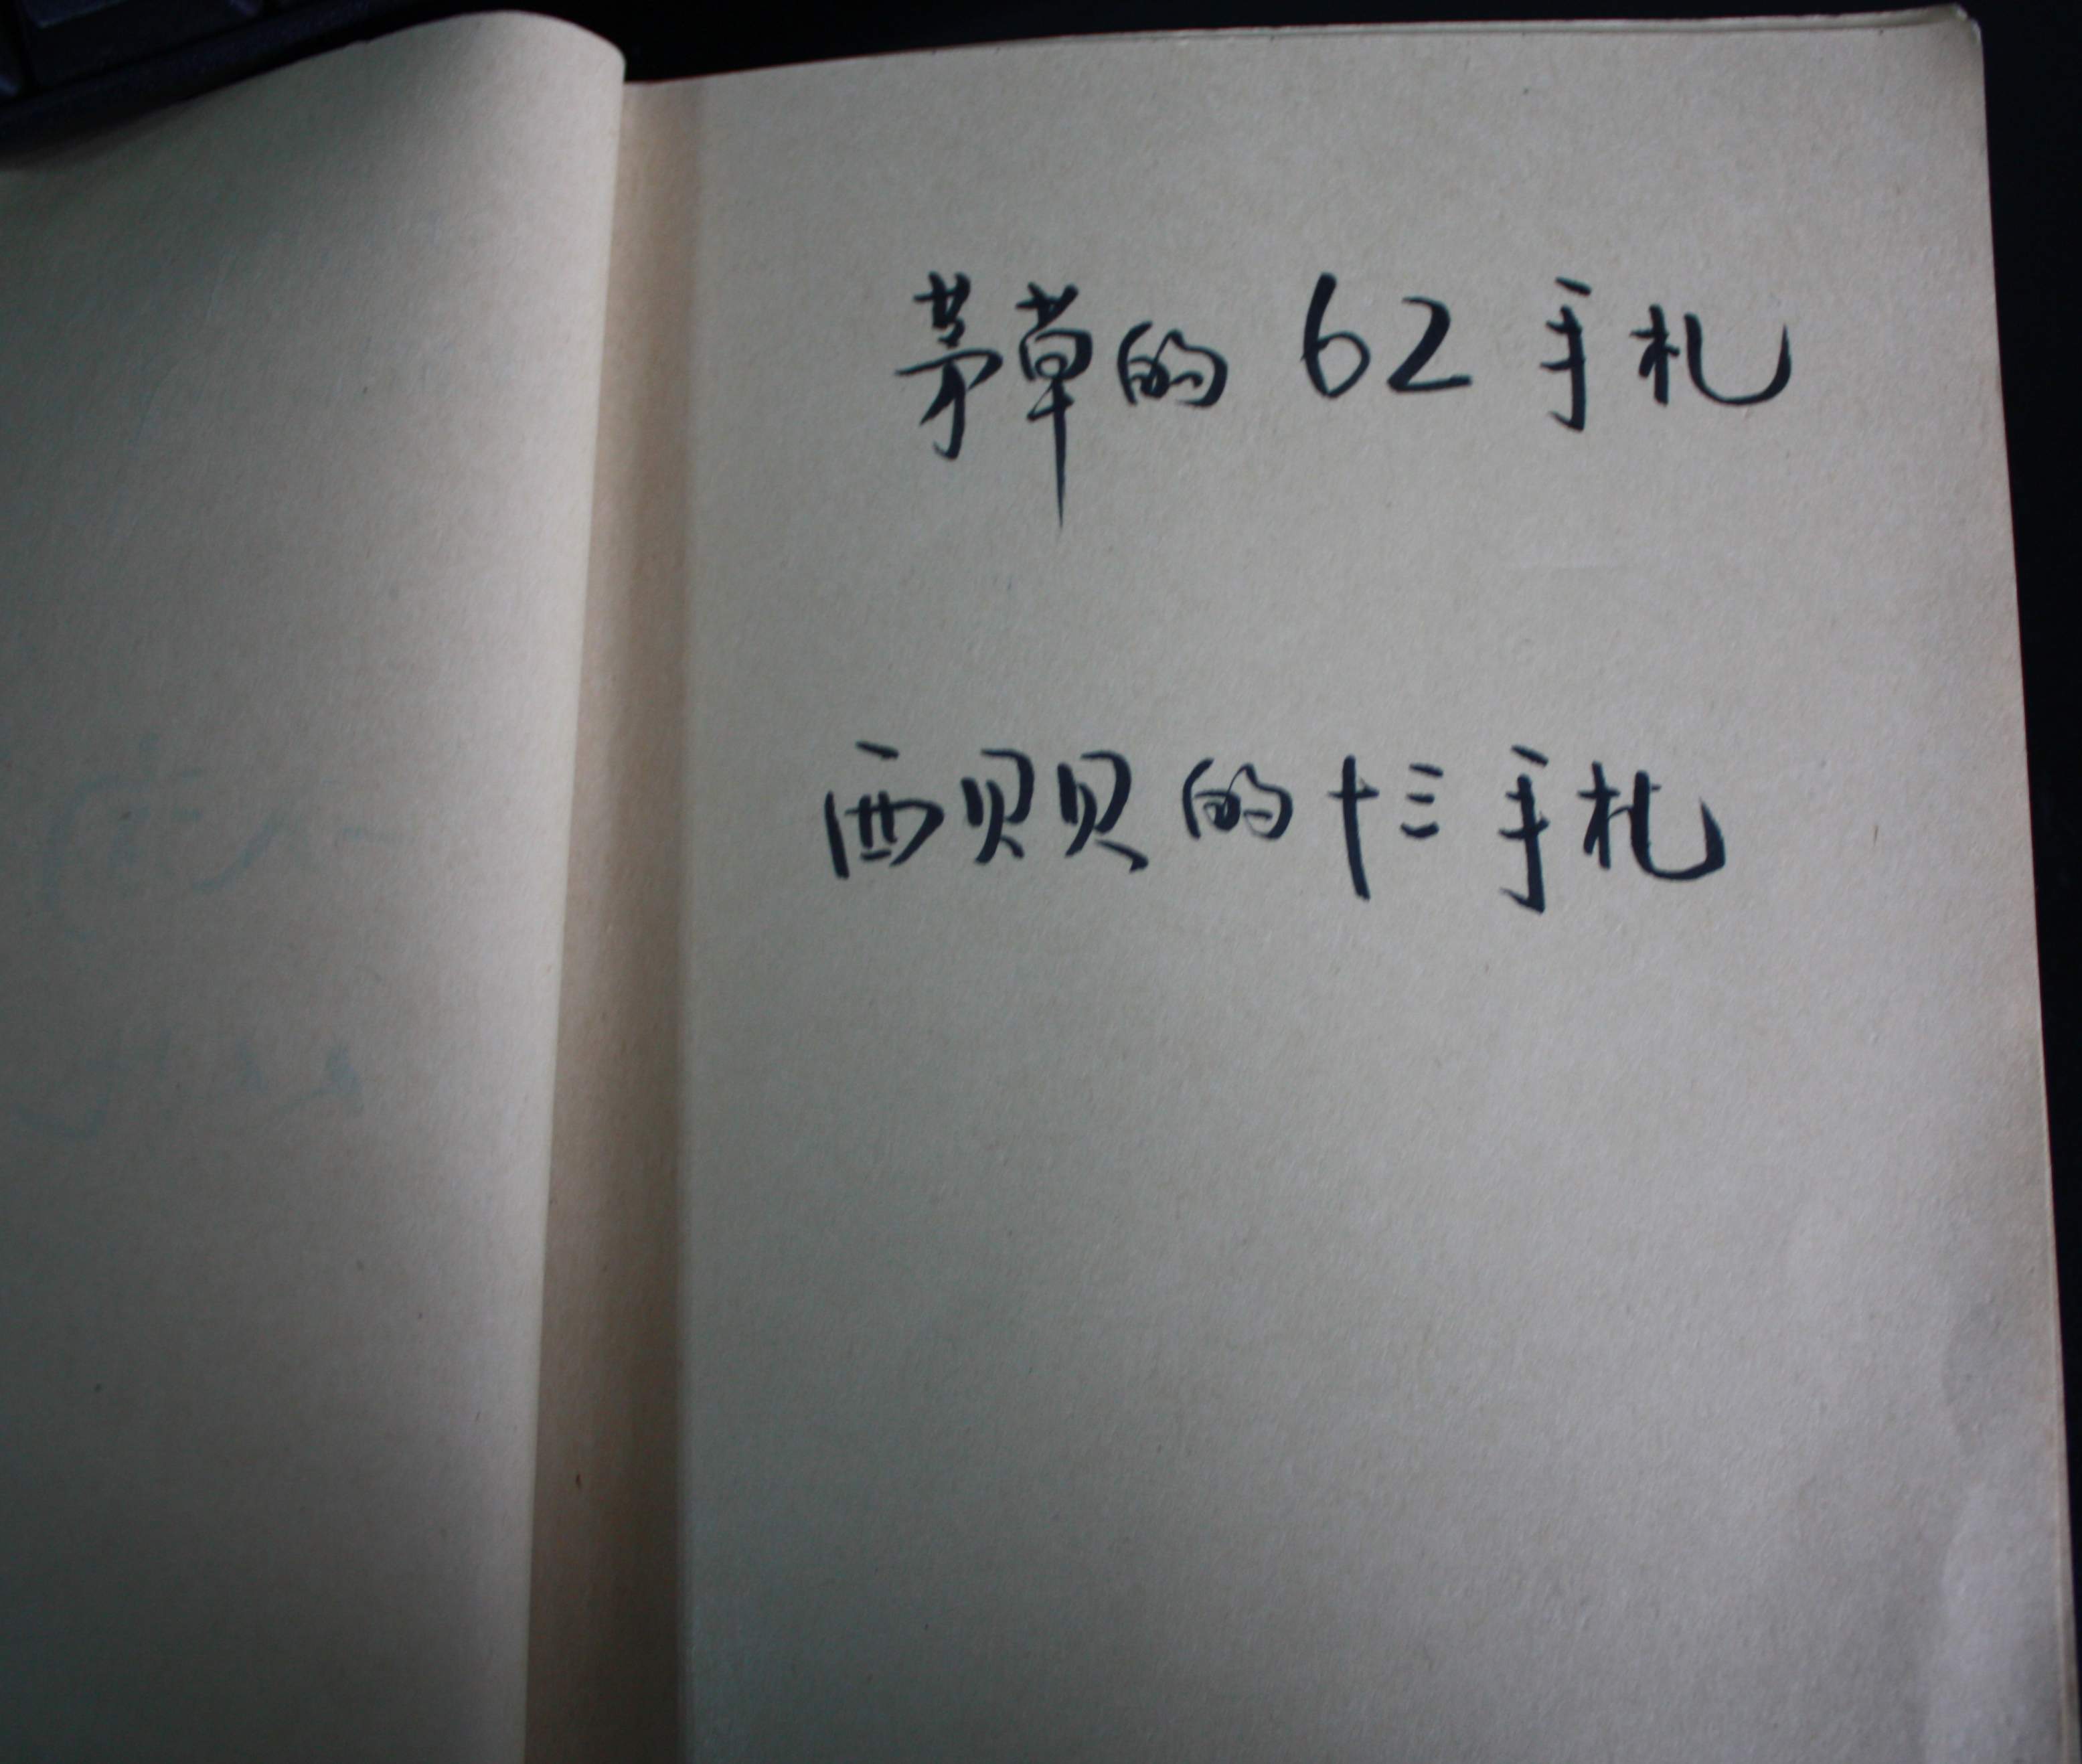 茅草的 62 手札
西贝贝的十三手札